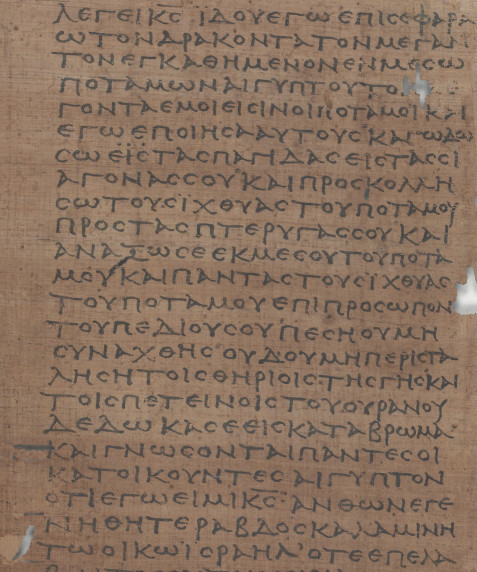 ΛΕΓΕΙΚ̅Ϲ̅ ΪΔΟΥΕΓΩΕΠΙϹΕΦΑΡΑ
ΩΤΟΝΔΡΑΚΟΝΤΑΤΟΝΜΕΓΑΝ
ΤΟΝΕΓΚΑΘΗΜΕΝΟΝΕΝΜΕϹΩ
ΠΟΤΑΜΩΝΑΙΓΥΠΤΟΥΤΟΝ
ΓΟΝΤΑΕΜΟΙΕΙϹΙΝΟΙΠΟΤΑΜΟΙΚΑΙ
ΕΓΩΕΠΟΙΗϹΑΑΥΤΟΥϹΚΑΙ
ϹΩΕΪϹΤΑϹΠΑΓΙΔΑϹΕΙϹΤΑϹϹΙ
ΑΓΟΝΑϹϹΟΥΚΑΙΠΡΟϹΚΟΛΛΗ
ϹΩΤΟΥϹΙΧΘΥΑϹΤΟΥΠΟΤΑΜΟΥ
ΠΡΟϹΤΑϹΠΤΕΡΥΓΑϹϹΟΥΚΑΙ
ΑΝΑΤΩϹΕΕΚΜΕϹΟΥΤΟΥΠΟΤΑ
ΜΟΥΚΑΙΠΑΝΤΑϹΤΟΥϹΙΧΘΥΑϹ
ΤΟΥΠΟΤΑΜΟΥΕΠΙΠΡΟϹΩΠΟΝ
ΤΟΥΠΕΔΙΟΥϹΟΥΠΕϹΗΟΥΜΗ
ϹΥΝΑΧΘΗϹΟΥΔΟΥΜΗΠΕΡΙϹΤΑ
ΛΗϹΗΤΟΙϹΘΗΡΙΟΙϹΤΗϹΓΗϹΚΑΙ
ΤΟΙϹΠΕΤΕΙΝΟΙϹΤΟΥΟΥΡΑΝΟΥ
ΔΕΔΩΚΑϹΕΕΙϹΚΑΤΑΒΡΩΜΑ
ΚΑΙΓΝΩϹΟΝΤΑΙΠΑΝΤΕϹΟΙ
ΚΑΤΟΙΚΟΥΝΤΕϹΑΙΓΥΠΤΟΝ
ΟΤΙΕΓΩΕΙΜΙΚ̅Ϲ̅ΑΝΘΩΝΕΓΕ
ΝΗΘΗΤΕΡΑΒΔΟϹΚΑΛΑΜΙΝΗ
ΤΩΟΙΚΩΙϹΡΑΗΛ'ΟΤΕΕΠΕΛΑ